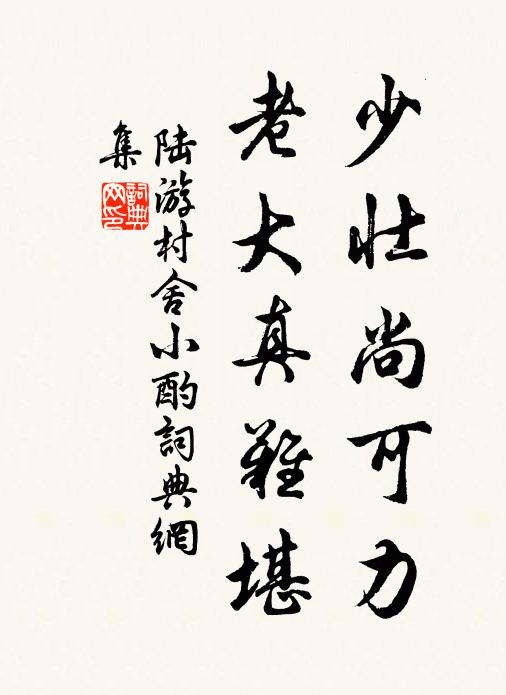 少壯尚可力
老大真難堪
陸游村舍小酌詞典網
集
詞典
网印